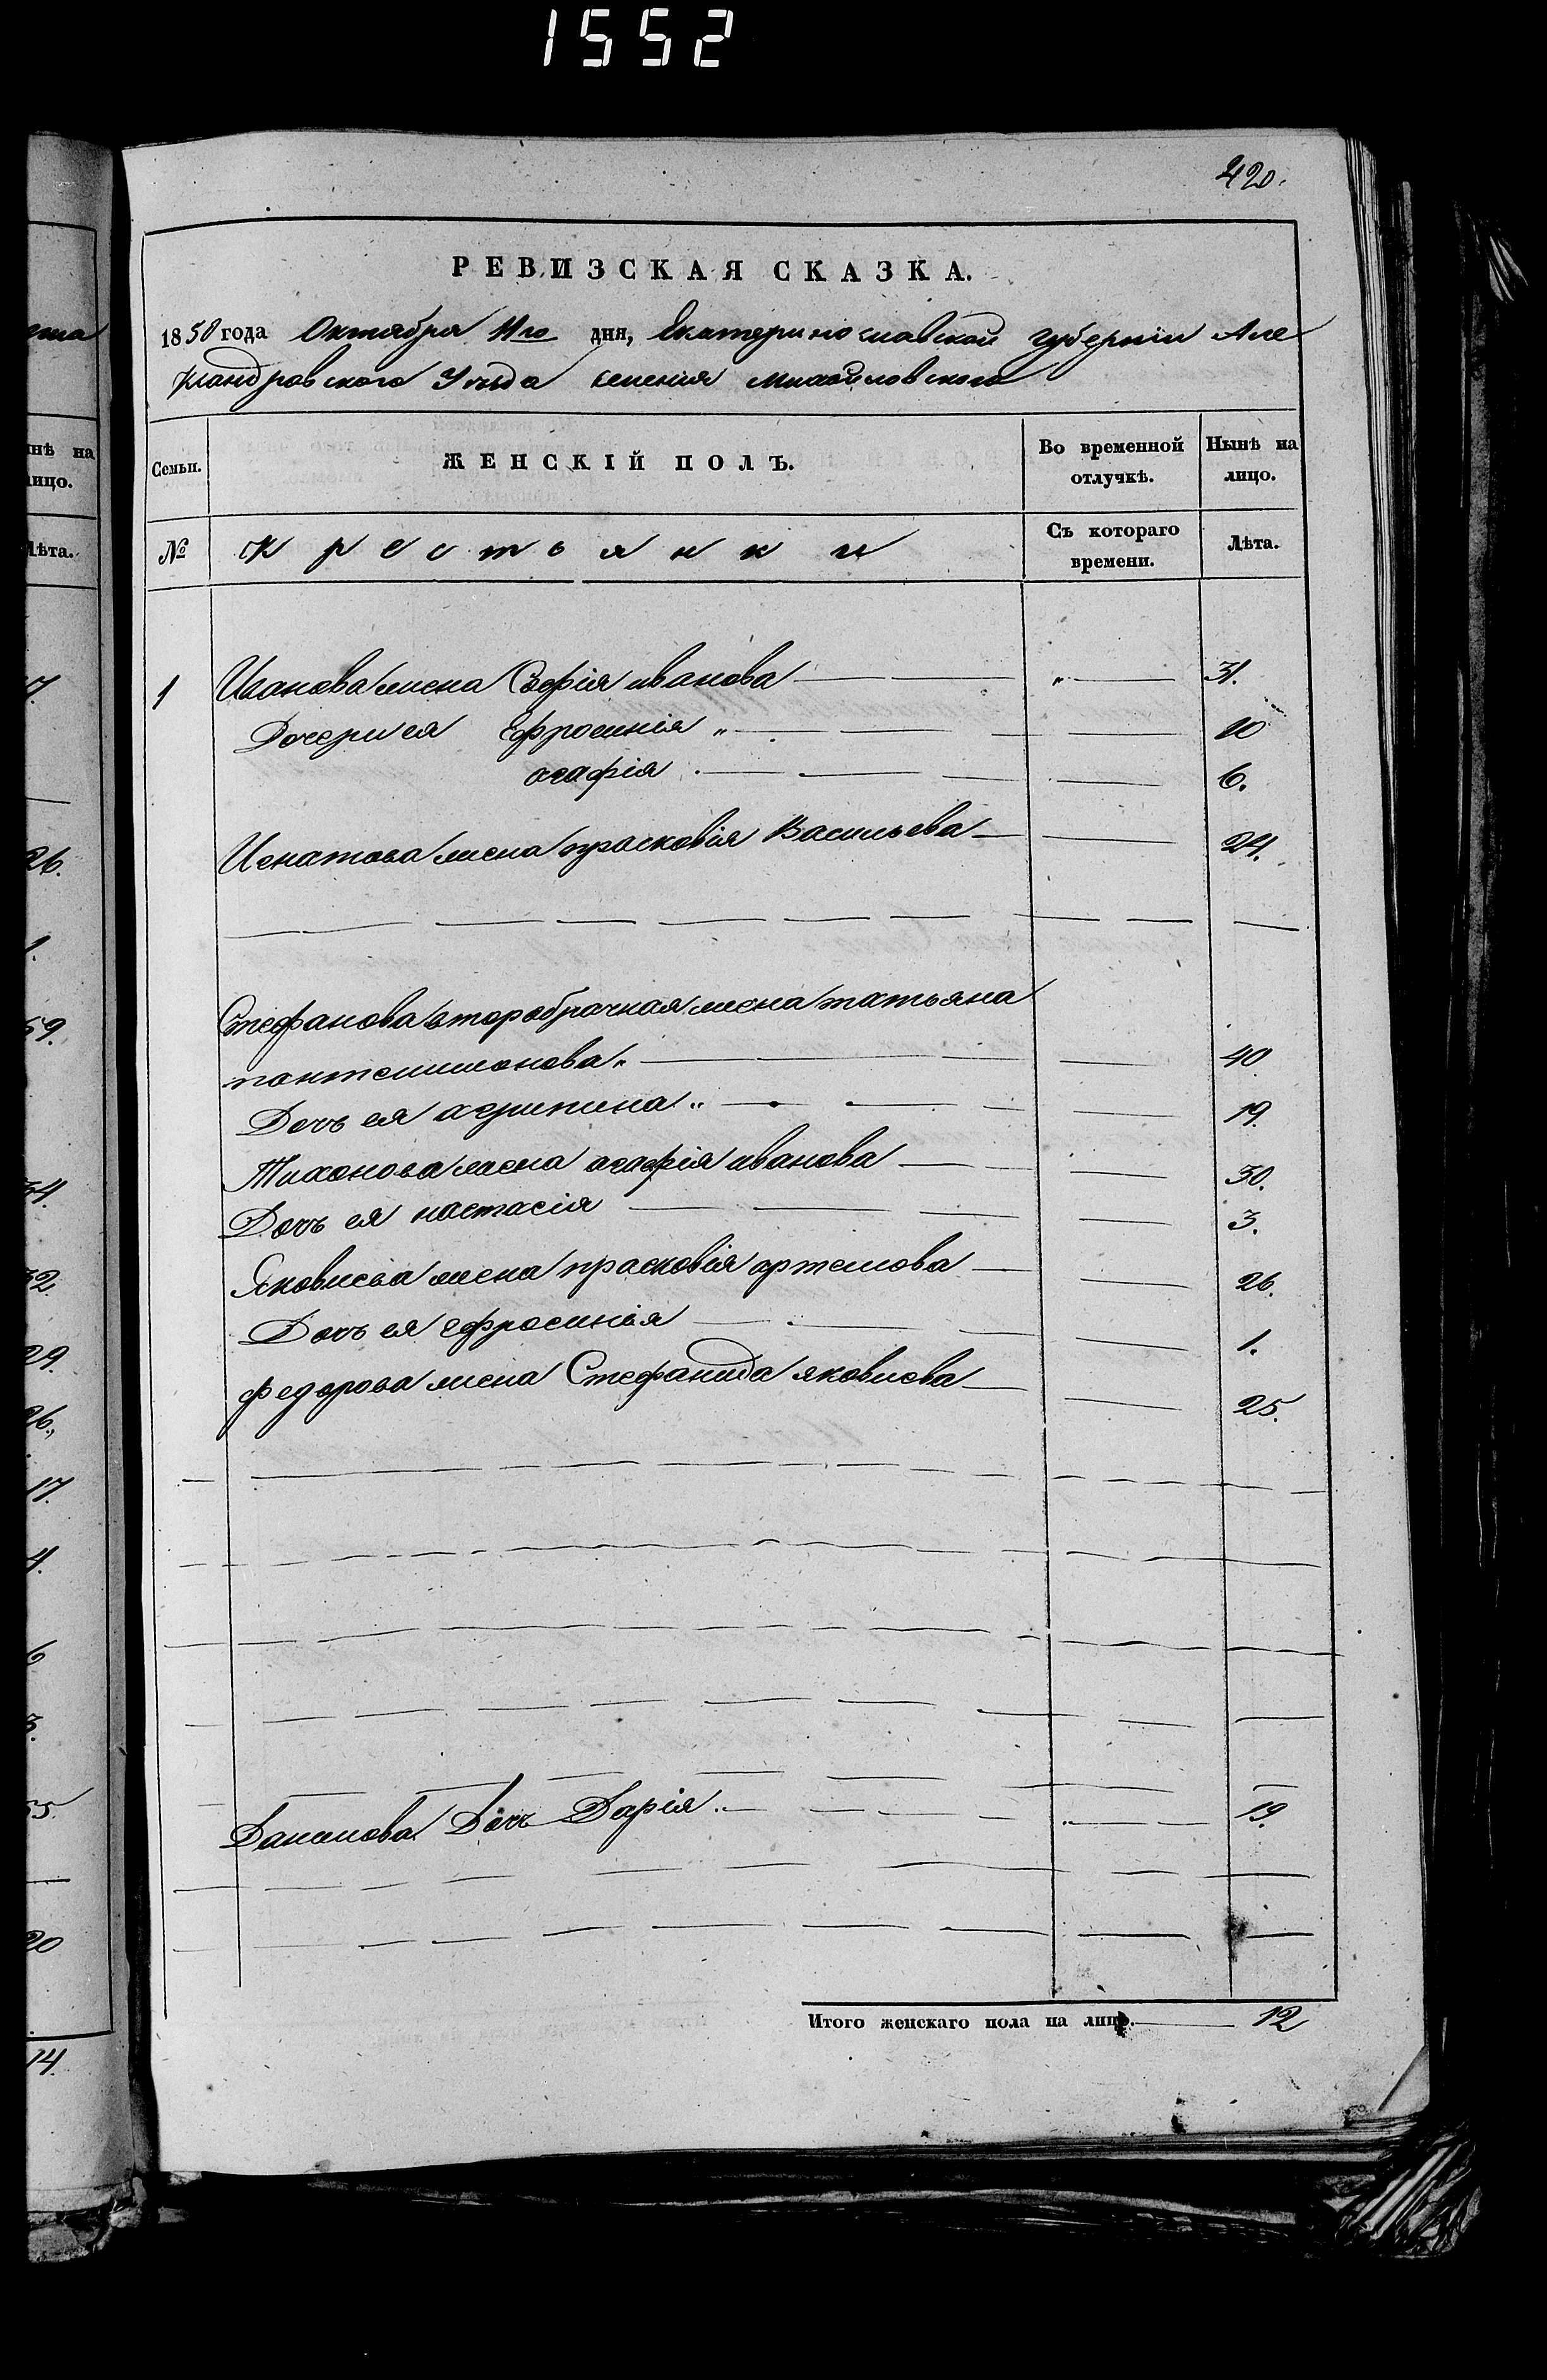 1552
420.
РЕВИЗСКАЯ СКАЗКА.
1850 года Октября 11го дня, Екатеринославской губерніи Але
ксандровского Уезда селенія Михайловского
Семьи. ЖЕНСКІЙ ПОЛЪ. Во временной отлучкѣ. Нынѣ на лицо.
№ Крестьянки Съ котораго времени. Лѣта.
1 Иванова жена Софія иванова „ 31.
Дочери ея Ефросинія „ 10
агафія 6.
Игнатова жена прасковія Васильева 24.
Стефанова второбрачная жена татьяна
пантелимонова „ 40
Дочь ея агрипина „ 19.
Тихонова жена агафія иванова 30.
Дочь ея настасія 3.
Яковлева жена прасковія артемова 26.
Дочь ея ефросинія 1.
федорова жена Стефанида яковлева 25.
Данилова Дочь Дарія. 19.
Итого женскаго пола на лицо. 12
нѣ на
лицо.
Лѣта.
7.
26.
1.
59.
34.
32
29.
26.,
17.
4.
6
3.
55.
20
14.